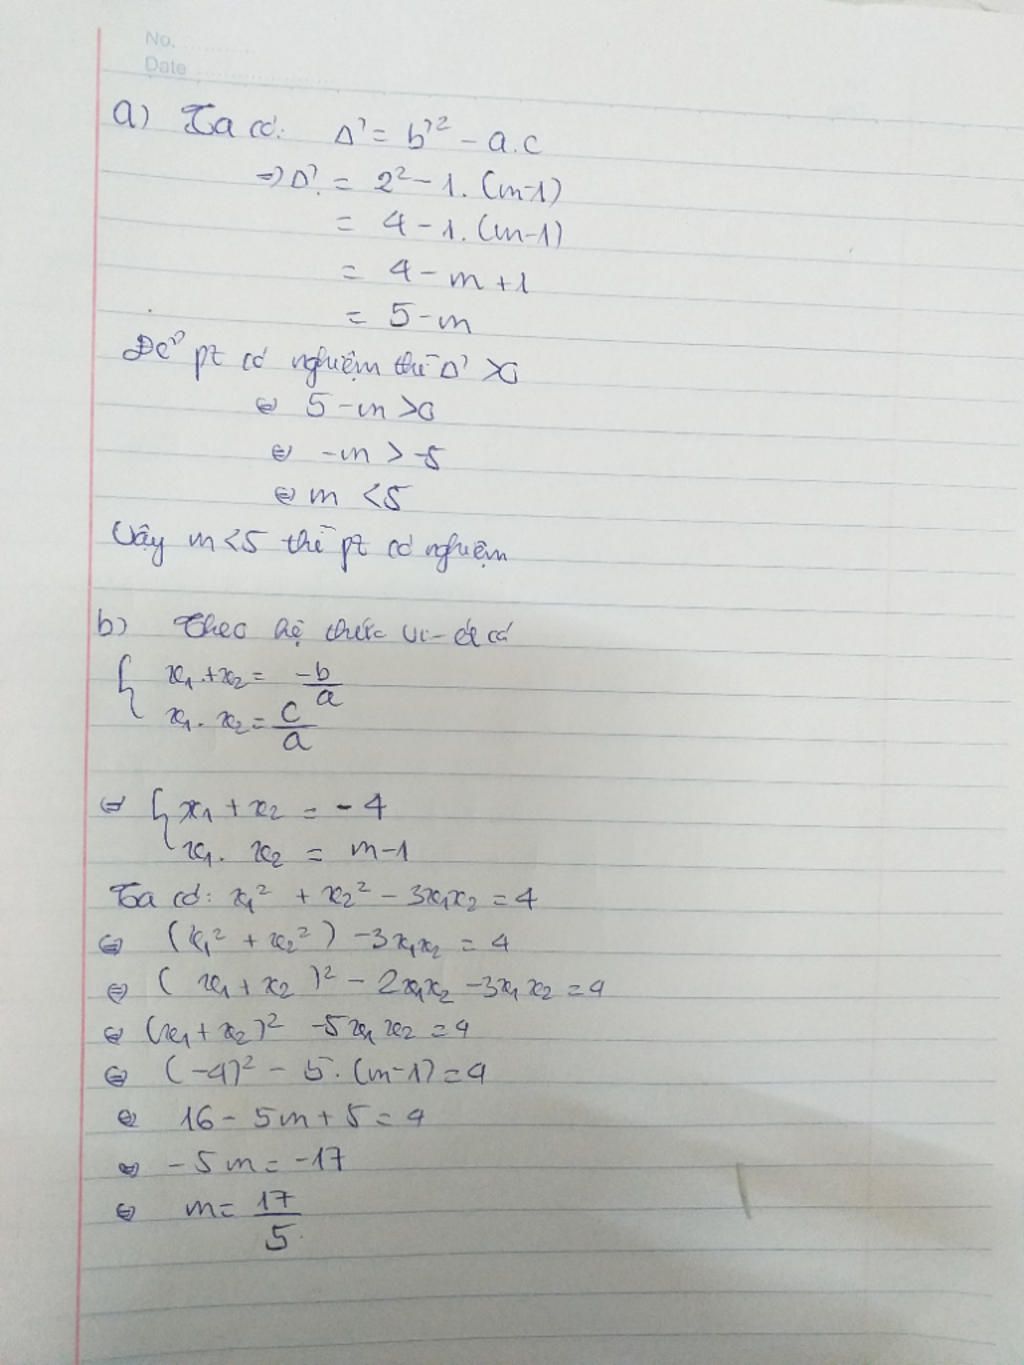 No.
Date
a) Ta có: Δ' = b'² - a.c
⇒ Δ' = 2² - 1. (m-1)
= 4 - 1. (m-1)
= 4 - m + 1
= 5 - m
Để pt có nghiệm thì Δ' >0
⇔ 5 - m >0
⇔ -m > -5
⇔ m < 5
Vậy m<5 thì pt có nghiệm
b) Theo hệ thức vi-ét có
{ x₁ + x₂ = -b/a
x₁. x₂ = c/a
⇔ { x₁ + x₂ = - 4
x₁. x₂ = m-1
Ta có: x₁² + x₂² - 3x₁x₂ = 4
⇔ (x₁² + x₂²) - 3x₁x₂ = 4
⇔ ( x₁ + x₂ )² - 2x₁x₂ - 3x₁x₂ = 4
⇔ (x₁ + x₂)² - 5x₁x₂ = 4
⇔ (-4)² - 5. (m-1) = 4
⇔ 16 - 5m + 5 = 4
⇔ - 5m = -17
⇔ m = 17/5